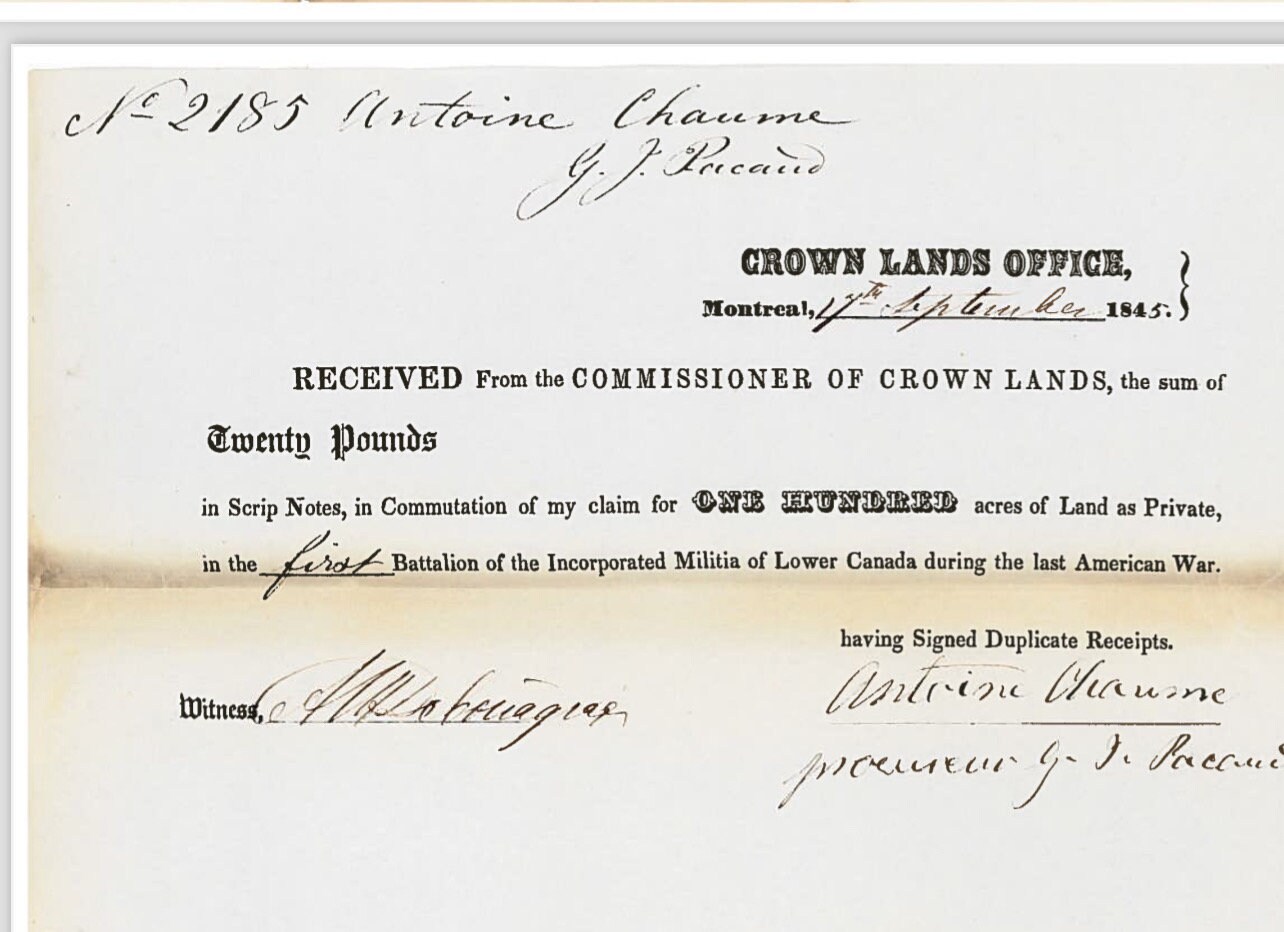 No 2185 Antoine Chaume
G. J. Pacaud
CROWN LANDS OFFICE,
Montreal, 17th September 1845.
RECEIVED From the COMMISSIONER OF CROWN LANDS, the sum of
Twenty Pounds
in Scrip Notes, in Commutation of my claim for ONE HUNDRED acres of Land as Private,
in the first Battalion of the Incorporated Militia of Lower Canada during the last American War.
having Signed Duplicate Receipts.
Antoine Chaume
Witness,
procureur G. J. Pacaud